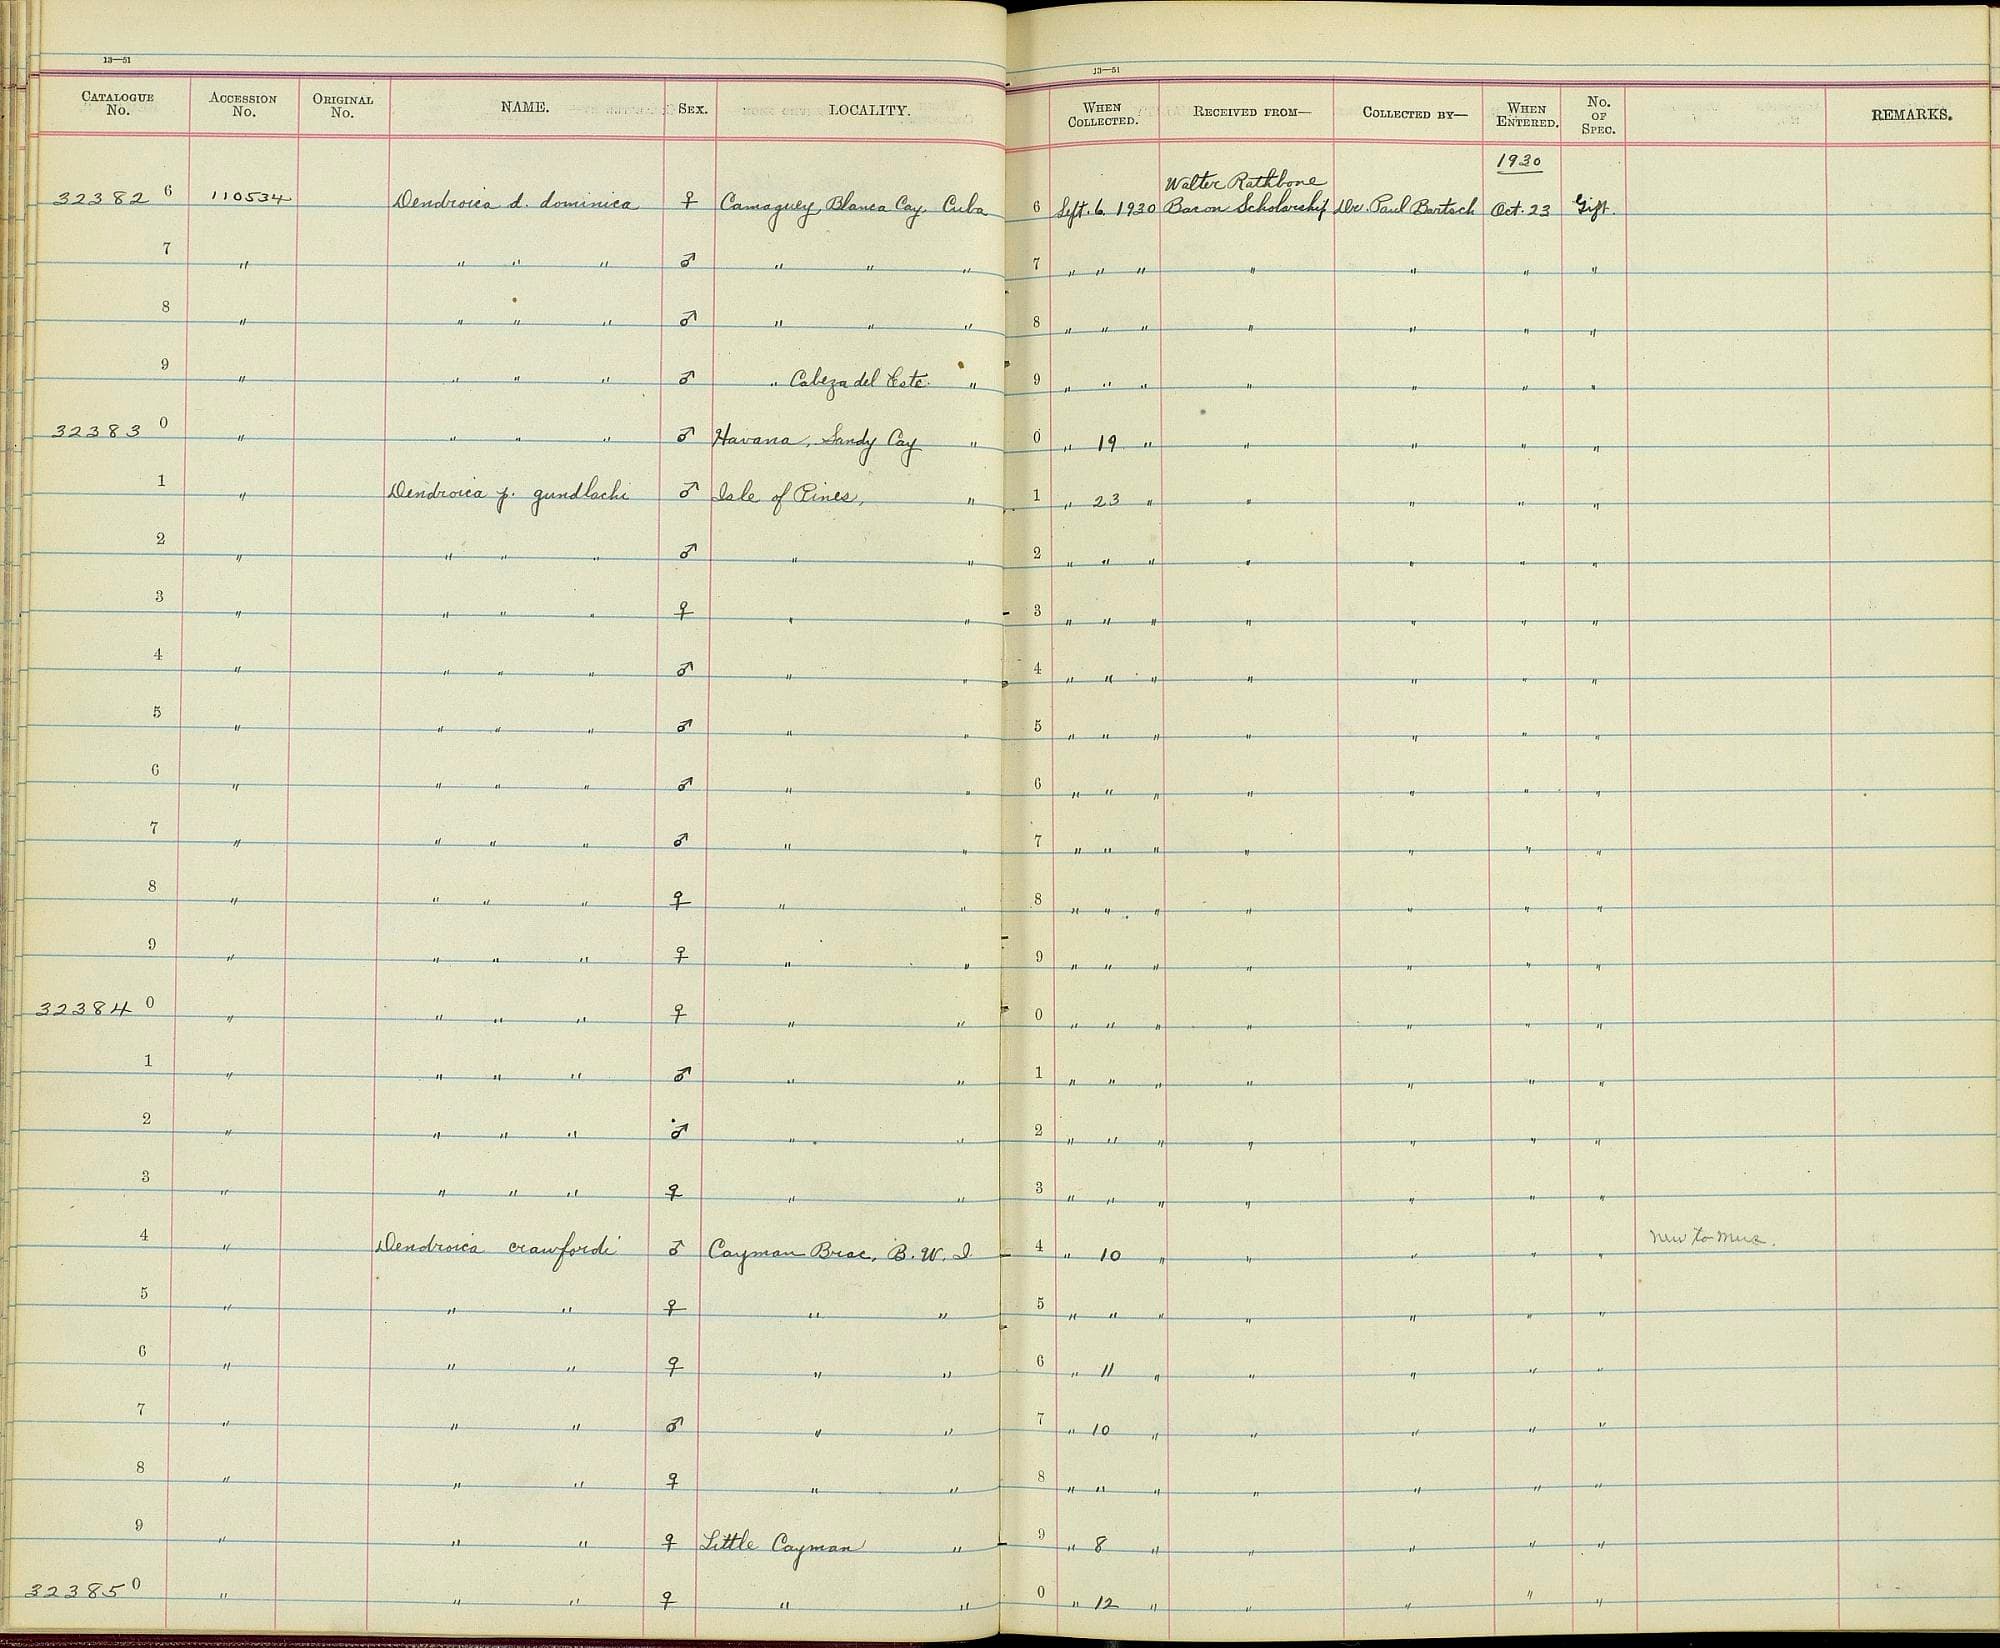 13—51
CATALOGUE No. ACCESSION No. ORIGINAL No. NAME. SEX. LOCALITY.
32382 6 110534 Dendroica d. dominica ♀ Camaguey, Blanca Cay, Cuba
7 " " " " ♂ " " "
8 " " " " ♂ " " "
9 " " " " ♂ " Cabeza del Este. "
32383 0 " " " " ♂ Havana, Sandy Cay "
1 " Dendroica p. gundlachi ♂ Isle of Pines, "
2 " " " " ♂ " "
3 " " " " ♀ " "
4 " " " " ♂ " "
5 " " " " ♂ " "
6 " " " " ♂ " "
7 " " " " ♂ " "
8 " " " " ♀ " "
9 " " " " ♀ " "
32384 0 " " " " ♀ " "
1 " " " " ♂ " "
2 " " " " ♂ " "
3 " " " " ♀ " "
4 " Dendroica crawfordi ♂ Cayman Brac, B. W. I
5 " " " ♀ " "
6 " " " ♀ " "
7 " " " ♂ " "
8 " " " ♀ " "
9 " " " ♀ Little Cayman "
32385 0 " " " ♀ " "
13—51
WHEN COLLECTED. RECEIVED FROM— COLLECTED BY— WHEN ENTERED. No. OF SPEC. REMARKS.
1930
Walter Rathbone
6 Sept. 6. 1930 Bacon Scholarship Dr. Paul Bartsch Oct. 23 Gift.
7 " " " " " " "
8 " " " " " " "
9 " " " " " " "
0 " 19 " " " " "
1 " 23 " " " " "
2 " " " " " " "
3 " " " " " " "
4 " " " " " " "
5 " " " " " " "
6 " " " " " " "
7 " " " " " " "
8 " " " " " " "
9 " " " " " " "
0 " " " " " " "
1 " " " " " " "
2 " " " " " " "
3 " " " " " " "
4 " 10 " " " " " New to Mus.
5 " " " " " " "
6 " 11 " " " " "
7 " 10 " " " " "
8 " " " " " " "
9 " 8 " " " " "
0 " 12 " " " " "